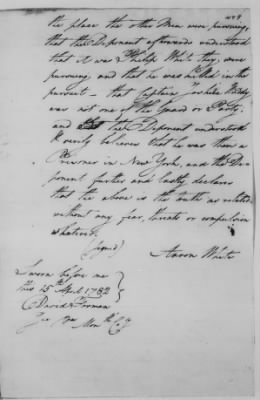 the place the other Men were pursuing,
that the Deponent afterwards understood
that it was Philip White they were
pursuing, and that he was killed in the
pursuit – that Captain Joshua Huddy
was not one of the Guard or Party;
and the Deponent understood
& verily believes that he was then a
Prisoner in New York, and the De-
ponent further and lastly declares
that the above is the truth as related
without any fear, threats or compulsion
whatever.
(signed)
Aaron White
Sworn before me
this 15th April 1782
David Forman